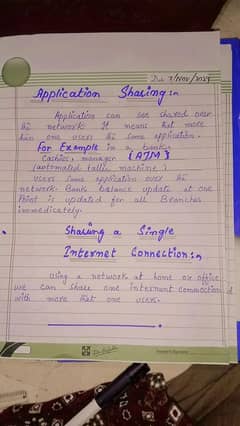 Application Sharing:~
Application can be shared over
the network. It means that more
than one users the same application.
For Example in a bank
Cashier, manager (ATM)
(automated tally machine)
users same application over the
network. Bank balance update at one
Point is updated for all Branches
immedicately.
Sharing a Single
Internet Connection:~
using a network at home or office
we can share one internet connection
with more that one users.